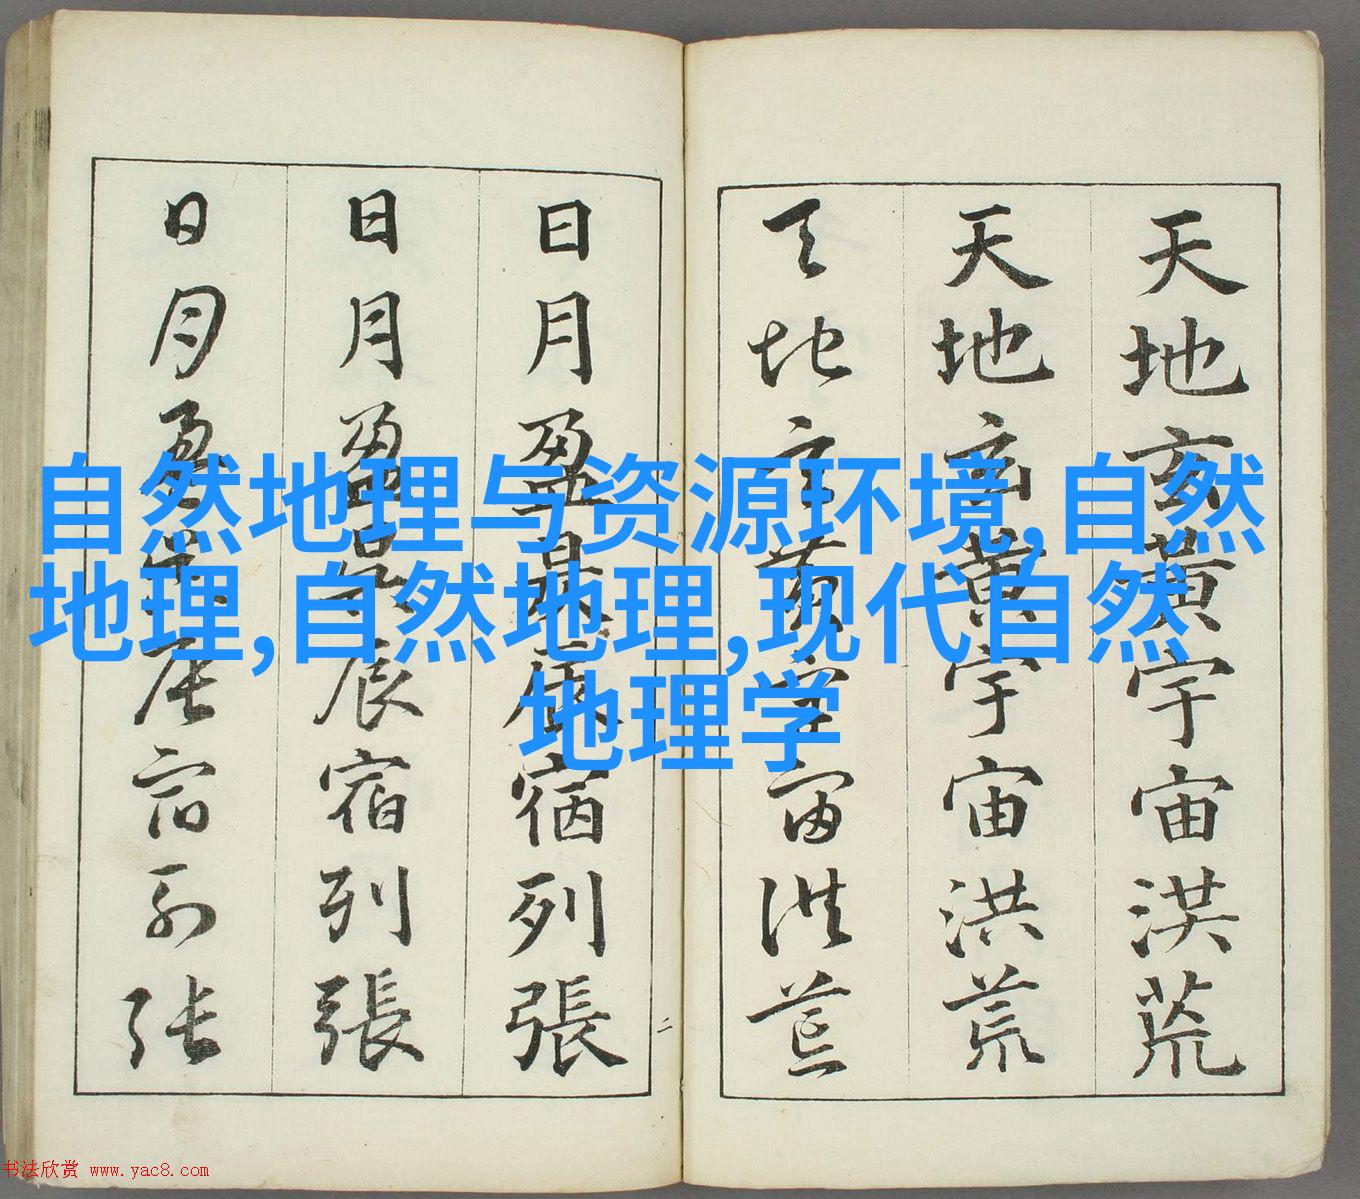 天地玄黃宇宙洪荒
天地玄黃宇宙洪荒
天地玄黃宇宙洪荒
日月盈昃辰宿列張
日月盈昃辰宿列張
日月盈昃辰宿列张
二
自然地理与资源环境,自然
地理,自然地理,现代自然
地理学
书法欣赏 www.yac8.com